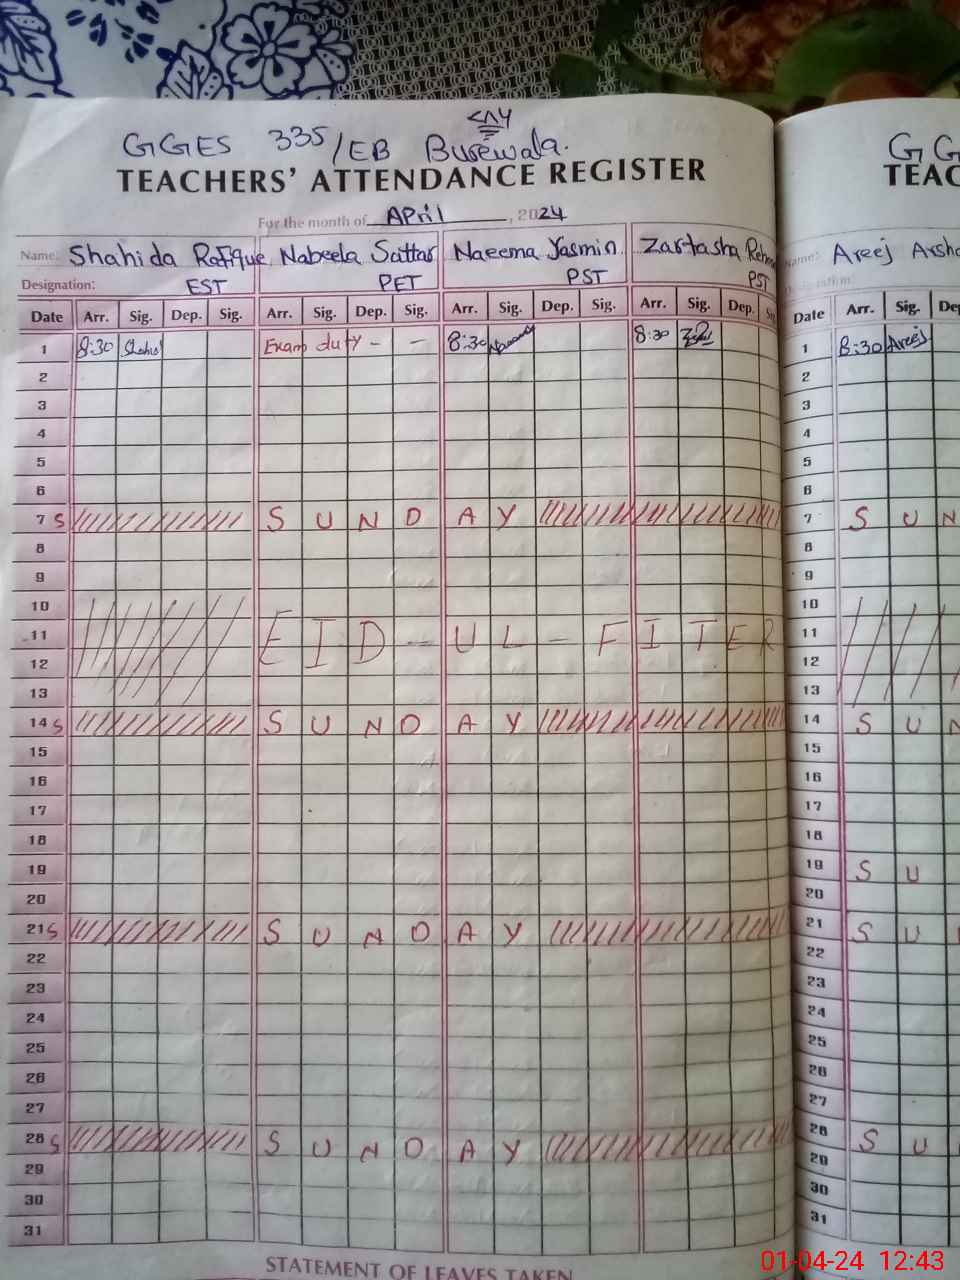 GGES 335/EB Burewala.
TEACHERS' ATTENDANCE REGISTER
For the month of April, 2024
Name: Shahida Rafique Nabeela Sattar Naeema Yasmin Zartasha Rehm
Designation: EST PET PST PST
Date Arr. Sig. Dep. Sig. Arr. Sig. Dep. Sig. Arr. Sig. Dep. Sig. Arr. Sig. Dep. Si
1 8:30 Exam duty - - 8:30 8:30
2
3
4
5
6
7 S S U N D A Y
8
9
10
11 E I D - U L - F I T E R
12
13
14 S S U N D A Y
15
16
17
18
19
20
21 S S U N D A Y
22
23
24
25
26
27
28 S S U N D A Y
29
30
31
STATEMENT OF LEAVES TAKEN
G G
TEAC
Name: Areej Arsha
Designation:
Date Arr. Sig. Dep
1 8:30 Areej
2
3
4
5
6
7 S U N
8
9
10
11
12
13
14 S U N
15
16
17
18
19 S U
20
21 S U
22
23
24
25
26
27
28 S U
29
30
31
01-04-24 12:43